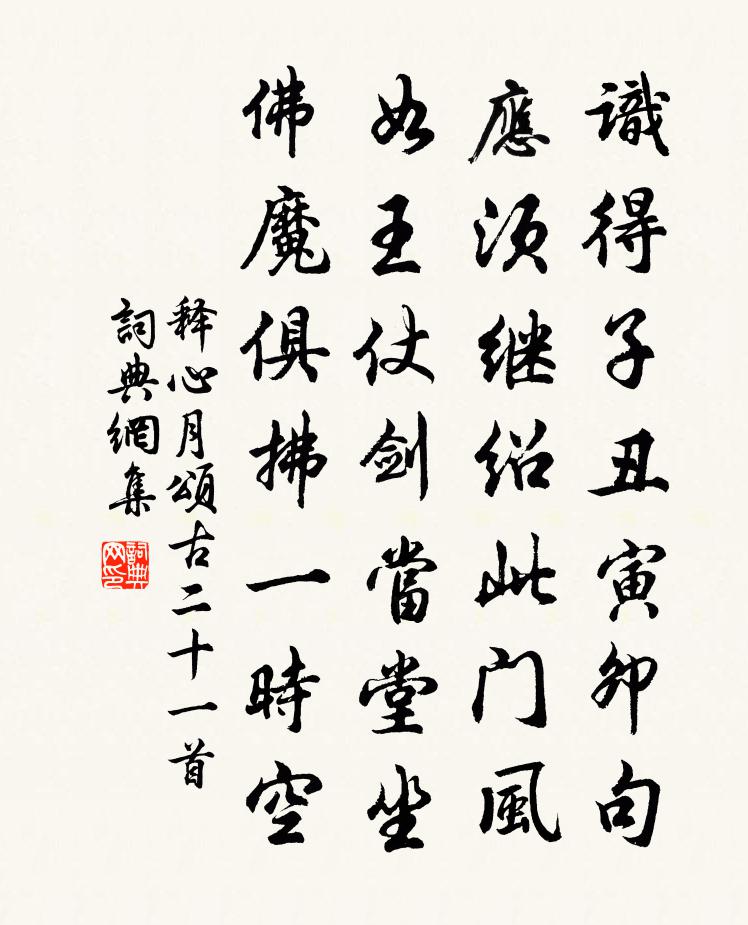 識得子丑寅卯句
應須继紹此門風
如王仗剑當堂坐
佛魔俱拂一時空
释心月頌古二十一首
詞典網集
詞典网印